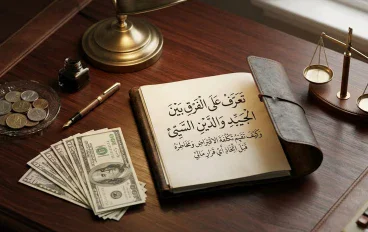 تَعَرَّفْ عَلَى الْفَرْقِ بَيْنَ
الْجَيِّدِ وَالدَّيْنِ السَّيِّئْ
وَكَيْفَ تقيم تَكْلِفَة الاقْتِرَاضِ وَمَخَاطِرَة
قَبْلَ اتِّخَاذِ أَيِّ قَرَارٍ مَالِيّ